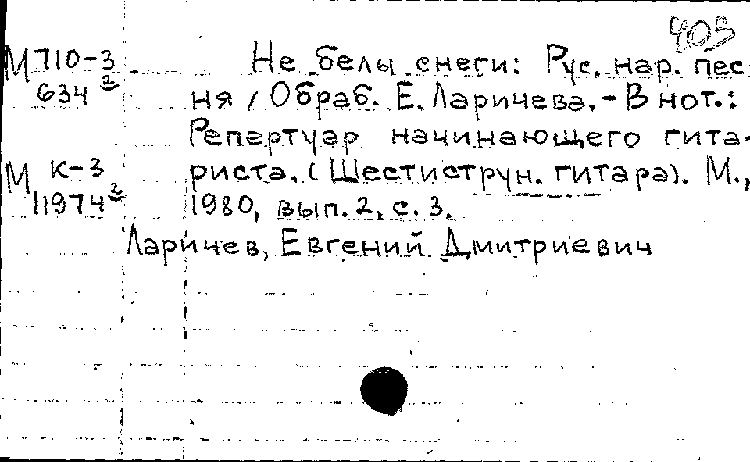 403
М 710-3 Не белы снеги: Рус. нар. пес-
634 2 ня / Обраб. Е. Ларичева. - В нот.:
Репертуар начинающего гита-
М К-3 риста. (Шестиструн. гитара). М.,
11974 2 1980, вып. 2, с. 3.
Ларичев, Евгений Дмитриевич